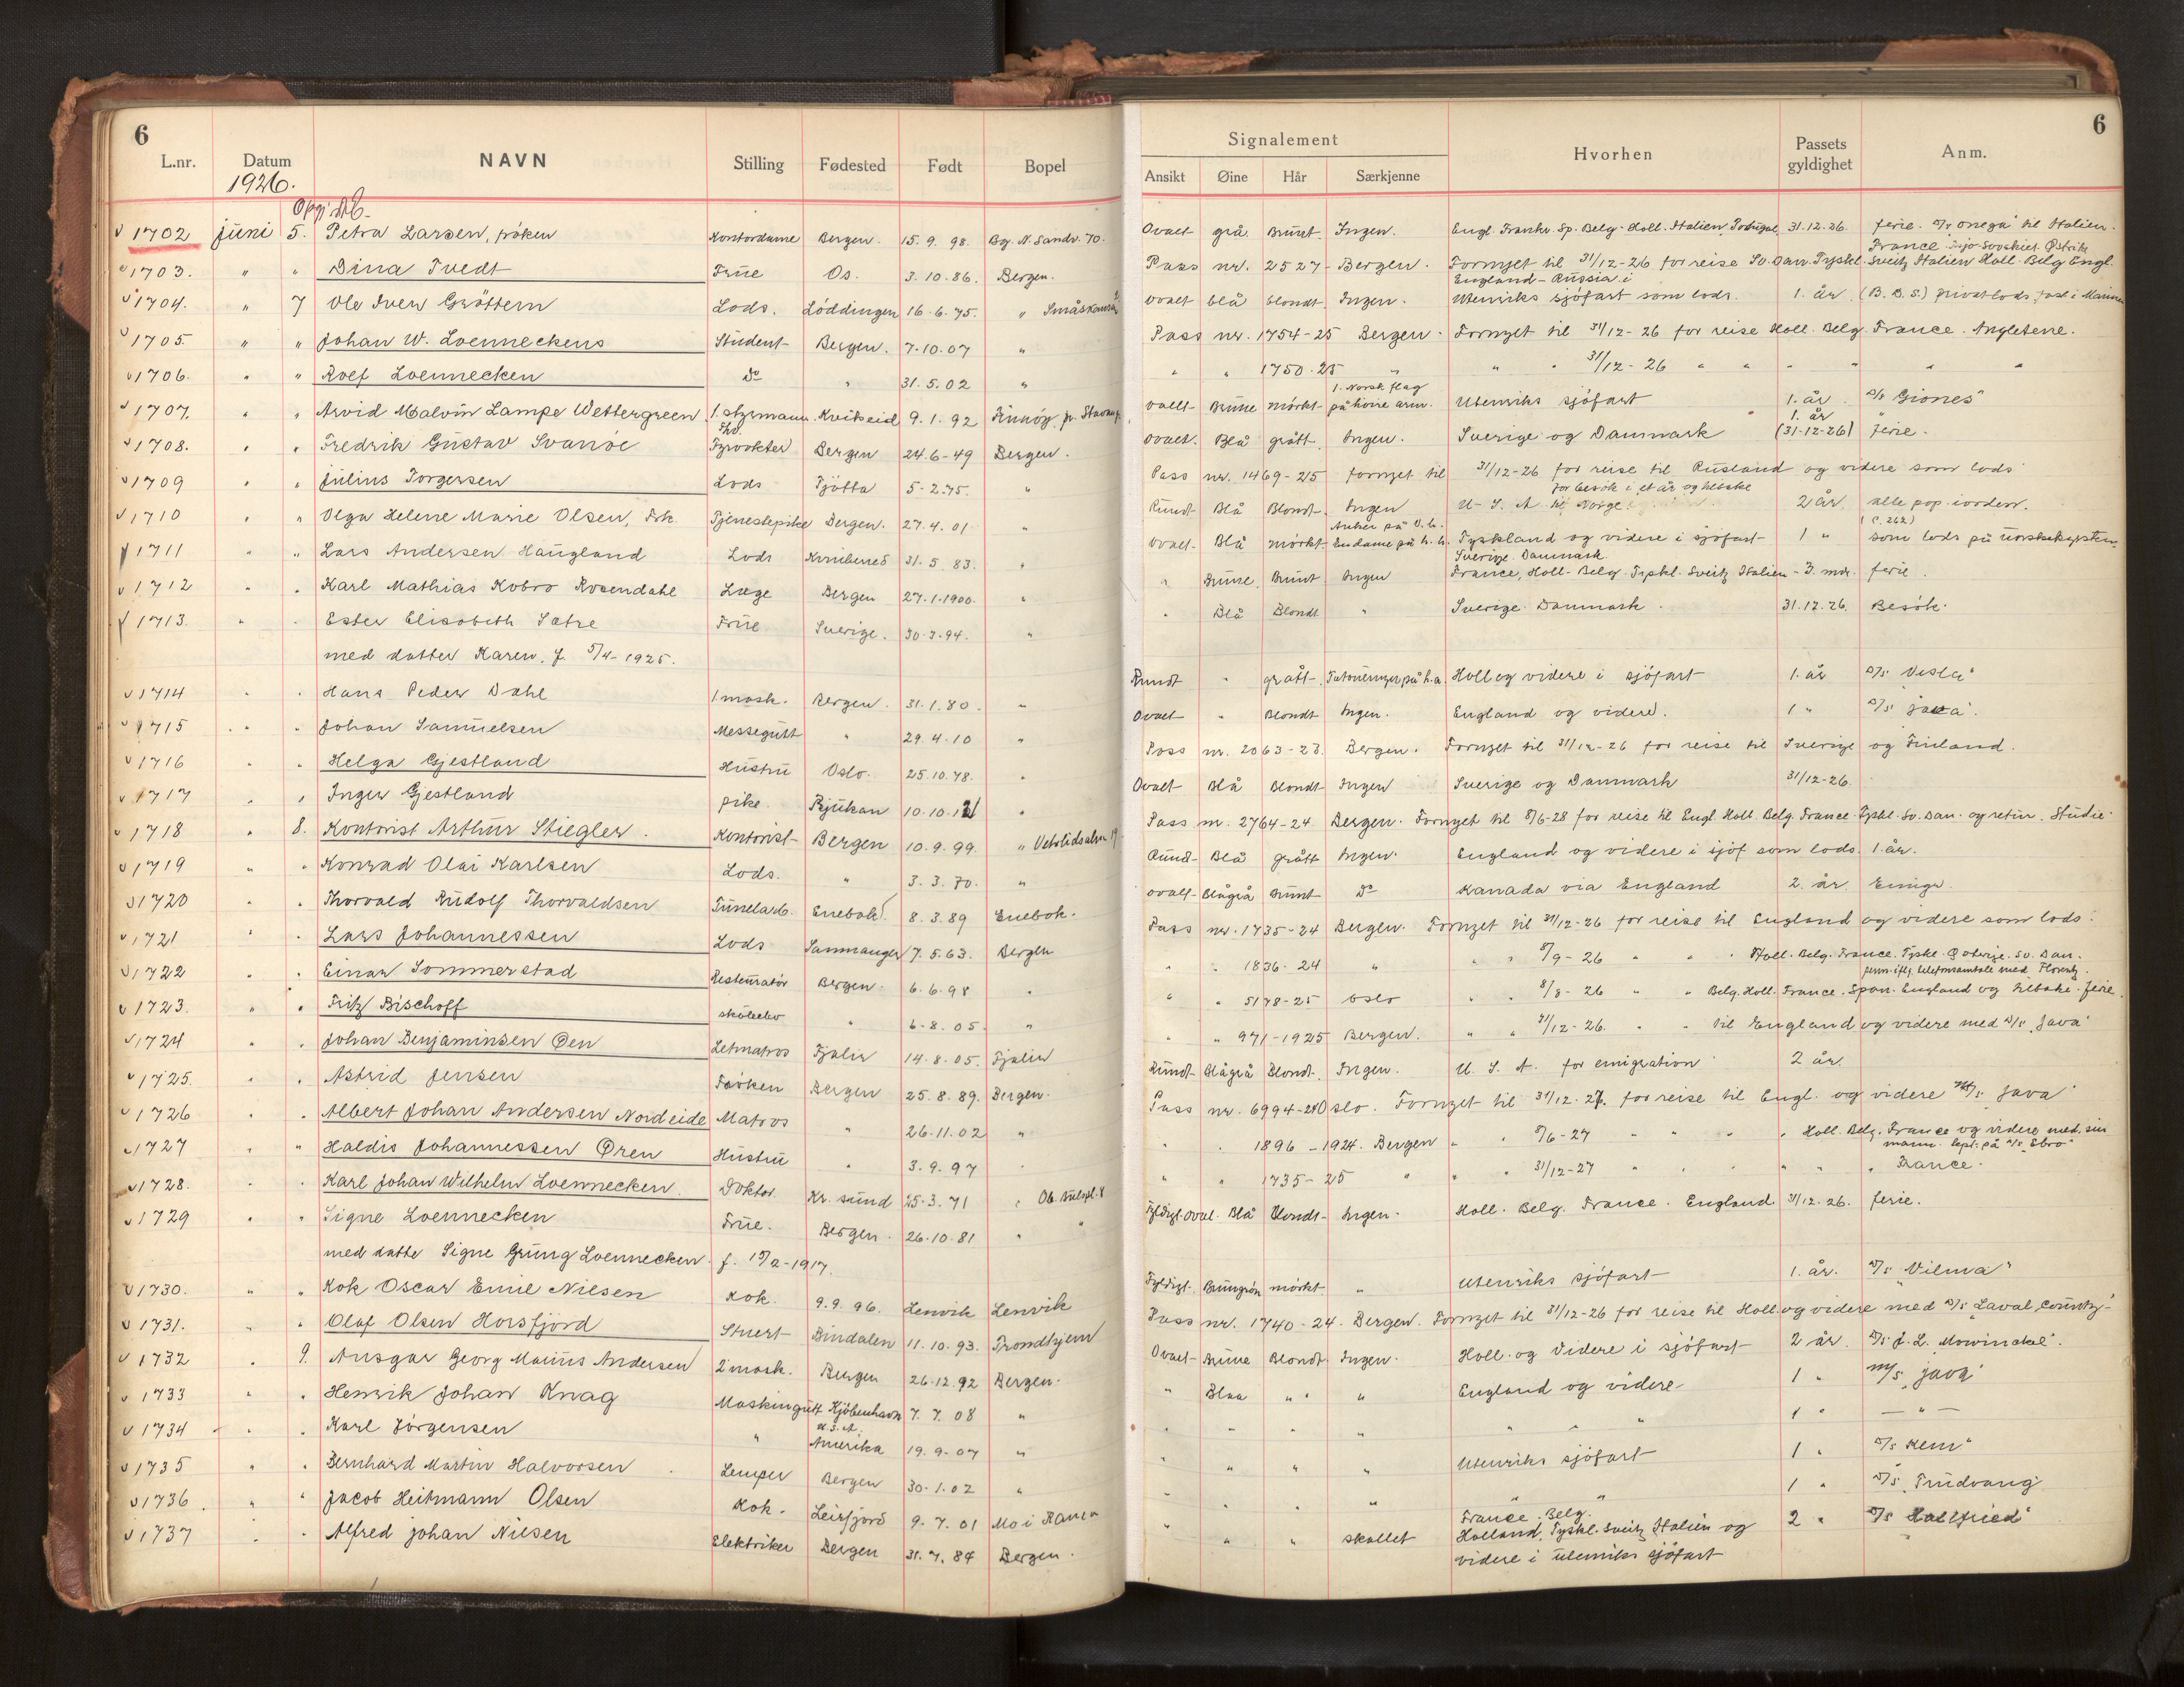 6
L.nr. Datum NAVN Stilling Fødested Født Bopel
1926.
1702 juni 5. Petra Larsen, fröken Kontordame Bergen. 15.9.98. Bg. N. Sandv. 70.
1703. " " Dina Tvedt Frue Os. 3.10.86. Bergen.
1704. " 7 Ole Iver Gröttem Lods. Löddingen 16.6.75. "
1705. " " Johan W. Loenneckens Student Bergen. 7.10.07 "
1706. " " Rolf Loennecken do " 31.5.02 "
1707. " " Arvid Malvin Lampe Wettergreen 1. styrmann. Kvikeid 9.1.92
1708. " " Fredrik Gustav Svanöe Fhv. Fyrvokter Bergen 24.6-49 Bergen.
1709 " " Julius Torgersen Lods Tjötta 5-2.75. "
1710 " " Olga Helene Marie Olsen, Frk. Tjenestepike Bergen. 27.4.01 "
1711 " " Lars Andersen Haugland Lods 31.5.83. "
1712 " " Karl Mathias Kobro Rosendahl Læge Bergen 27.1.1900. "
1713. " " Ester Elisabeth Sætre Frue Sverige. 30.3.94. "
med datter Karen, f. 5/4-1925.
1714 " " Hans Peder Dahl 1 mask. Bergen. 31.1.80. "
1715 " " Johan Samuelsen Messegutt " 29.4.10 "
1716 " " Helga Gjestland Hustru Oslo. 25.10.78. "
1717 " " Inger Gjestland pike. Rjukan 10.10. "
1718 " 8. Kontorist Arthur Stiegler. Kontorist Bergen 10.9.99. "
1719 " " Konrad Olai Karlsen Lods. " 3.3.70. "
1720 " " Thorvald Rudolf Thorvaldsen Tunelarb. Enebak 8.3.89 Enebak.
1721 " " Lars Johannessen Lods Sammanger 7.5.63. Bergen
1722 " " Einar Sommerstad Restauratør Bergen. 6.6.98 "
1723. " " Fritz Bischoff skoleelev " 6-8.05. "
1724 " " Johan Benjaminsen Øen Letmatros Fjaler 14.8.05. Fjaler
1725. " " Astrid Jensen Fröken Bergen 25.8.89. Bergen.
1726 " " Albert Johan Andersen Nordeide Matros " 26.11.02 "
1727 " " Haldis Johannessen Øren Hustru " 3.9.97 "
1728. " " Karl Johan Wilhelm Loennecken. Doktor Kr. sund 25.3.71 "
1729 " " Signe Loennecken Frue. Bergen. 26.10.81 " "
med datter Signe Grung Loennecken. f. 15/2-1917.
1730. " " Kok Oscar Emil Nilsen Kok. 9.9.96. Lenvik Lenvik
1731. " " Olaf Olsen Horsfjord Stuert Bindalen 11.10.93. Trondhjem
1732 " 9. Ansgar Georg Marius Andersen 2 mask. Bergen 26.12.92 Bergen.
1733 " " Henrik Johan Knag Maskingutt Kjöbenhavn 7.7.08 "
1734 " " Karl Jörgensen " U.S.A. Amerika 19.9.07 "
1735 " " Bernhard Martin Halvorsen Lemper Bergen 30.1.02 "
1736. " " Jacob Heitmann Olsen Kok. Leirfjord 9.7.01 Mo i Rana
1737 " " Alfred Johan Nilsen Elektriker Bergen 31.7.84 Bergen.
6
Signalement Hvorhen Passets gyldighet Anm.
Ansikt Øine Hår Særkjenne
Ovalt grå Brunt Ingen. Engl. Frankr. Sp. Belg. Holl. Italien, Portugal 31.12.26. ferie. D/S "Onega" til Italien.
Pass nr. 2527 - Bergen. Fornyet til 31/12-26 for reise Sv. Dan. Tyskl. Sveitz Italien Holl. Belg. Engl.
France Østrik
England - Russia i
ovalt blå blondt Ingen. Utenriks sjöfart som lods. 1. år (B.D.S.) privatlods
Pass nr. 1754-25 Bergen. Fornyet til 31/12-26 for reise Holl. Belg. France. Angleterre.
" " 1750.25 " " " 31/12-26 " " " " " "
ovalt Brune mörkt 1. Norsk flag på höire arm. Utenriks sjöfart 1. år D/S "Giones"
ovalt. Blå grått Ingen. Sverige og Danmark 1. år (31-12-26) ferie.
Pass nr. 1469-25 fornyet til 31/12-26 for reise til Rusland og videre som lods
for besök i et år og tilbake
Rundt Blå Blondt Ingen U.S.A. til Norge 2 år
(P. 262)
ovalt Blå mörkt Anker på v.h. Endame på h.h. Tyskland og videre i sjöfart 1 " som lods på norskekysten
Sverige. Danmark
" Brune. Brunt Ingen France, Holl. Belg. Tyskl. Sveitz Italien - 3. mdr. ferie.
" Blå Blondt " Sverige. Danmark. 31.12.26. Besök.
Rundt " grått. Tatoveringer på h.a. Holl og videre i sjöfart 1. år D/S "Vesla"
Ovalt " Blondt Ingen. England og videre. 1 " D/S "Java".
Pass nr. 2063-23. Bergen. Fornyet til 31/12-26 for reise til Sverige og Finland.
Ovalt Blå blondt Ingen Sverige og Danmark 31/12-26.
Pass nr. 2764-24. Bergen. Fornyet til 8/6-28 for reise til Engl. Holl. Belg. France. Tyskl. Sv. Dan. og retur. Studie.
Rund Blå grått Ingen. England og videre i sjöf som lods. 1. år.
ovalt Blågrå Brunt do Kanada via England 2. år. Emigr.
Pass nr. 1735-24 Bergen. Fornyet til 31/12-26 for reise til England og videre som lods.
" " 1836-24 " " " 8/9-26 " " Holl. Belg. France. Tyskl. Østerige. Sv. Dan.
" " 5178-25 Oslo " " 8/8-26 " " Belg. Holl. France. Span. England og tilbake. ferie.
" " 971-1925 Bergen. " " 31/12-26. " " til England og videre med D/S "Java"
Rundt Blågrå Blondt. Ingen. U.S.A. for emigration 2 år.
Pass nr. 6994- Oslo. Fornyet til 31/12.27. for reise til Engl. og videre M/S "Java"
" " 1896-1924. Bergen " " 8/6-27 " " " Holl. Belg. France og videre med sin
mann. kapt. på D/S "Ebro"
" " 1735-25 " " " 31/12-27 " " " " " France.
Fyldigt oval. Blå Blondt Ingen. Holl. Belg. France. England. 31/12.26. ferie.
Fyldigt. Brungrön mörkt " utenriks sjöfart 1. år. D/S "Vilma"
Pass nr. 1740-24. Bergen. Fornyet til 31/12-26 for reise til Holl. og videre med D/S "Laval County"
Ovalt Brune Blondt Ingen. Holl. og videre i sjöfart 2 år. D/S "J. L. Mowinckel".
" Blaa " " England og videre 1 " M/S "Java"
" " " " " " " 1 " — " —
" " " " Utenriks sjöfart 1 " D/S "Kem"
" " " " " " 1 " D/S "Trudvang"
France. Belg.
" " " skallet Holland, Tyskl. Sveitz Italien og 2 " D/S
videre i utenriks sjöfart